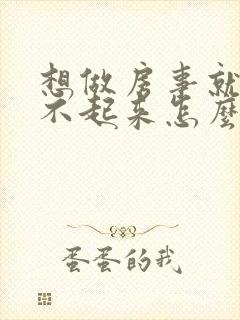 想做房事就
不起来怎麼
蛋蛋的我